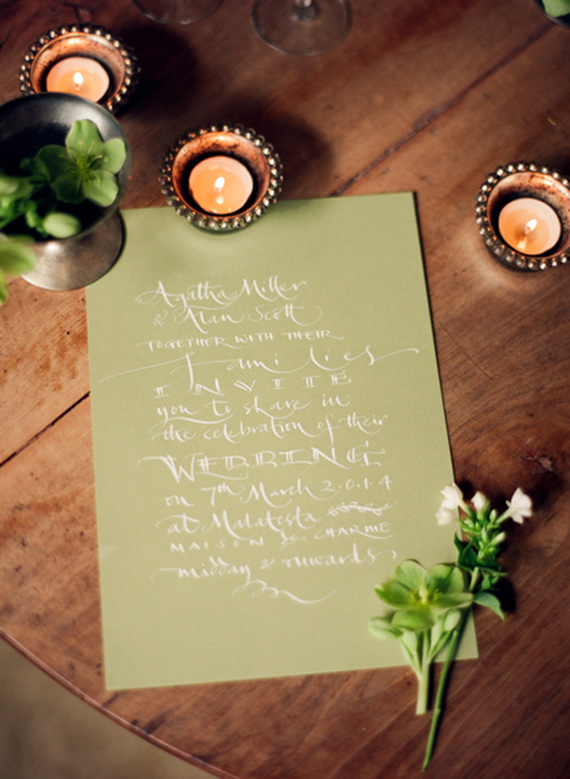 Agatha Miller
& Alan Scott
TOGETHER WITH THEIR
Families
INVITE
you to share in
the celebration of their
WEDDING
on 7th March 2.0.1.4
at Malatesta
MAISON de CHARME
midday & onwards